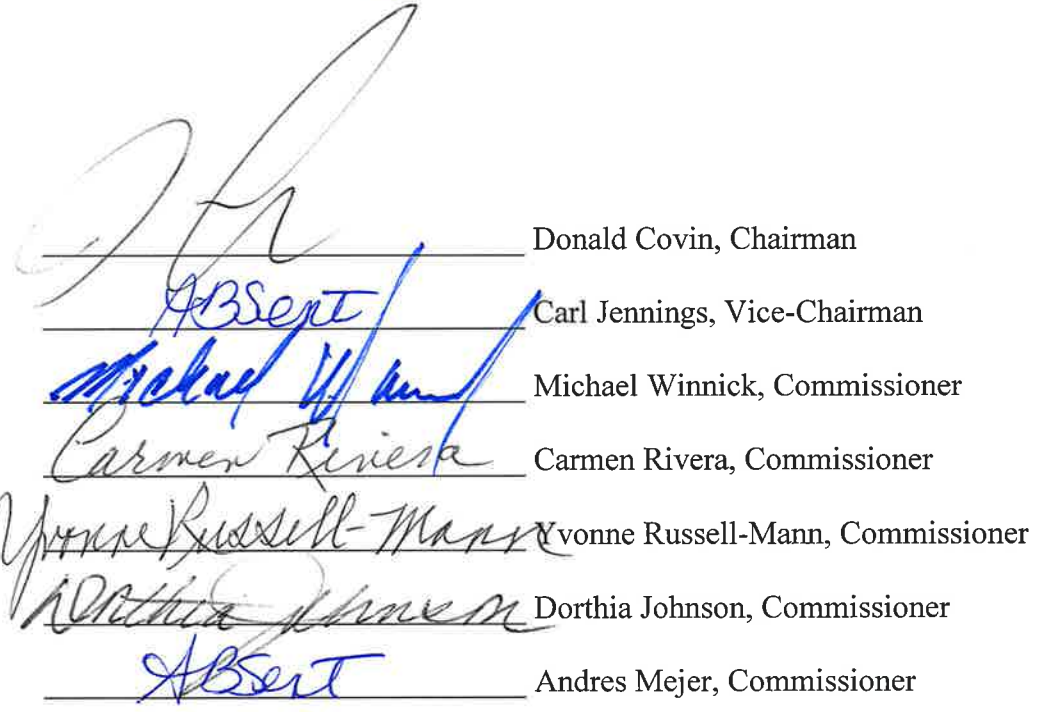 Donald Covin, Chairman
ABSent Carl Jennings, Vice-Chairman
Michael Winnick Michael Winnick, Commissioner
Carmen Rivera Carmen Rivera, Commissioner
Yvonne Russell-Mann Yvonne Russell-Mann, Commissioner
Dorthia Johnson Dorthia Johnson, Commissioner
ABSenT Andres Mejer, Commissioner